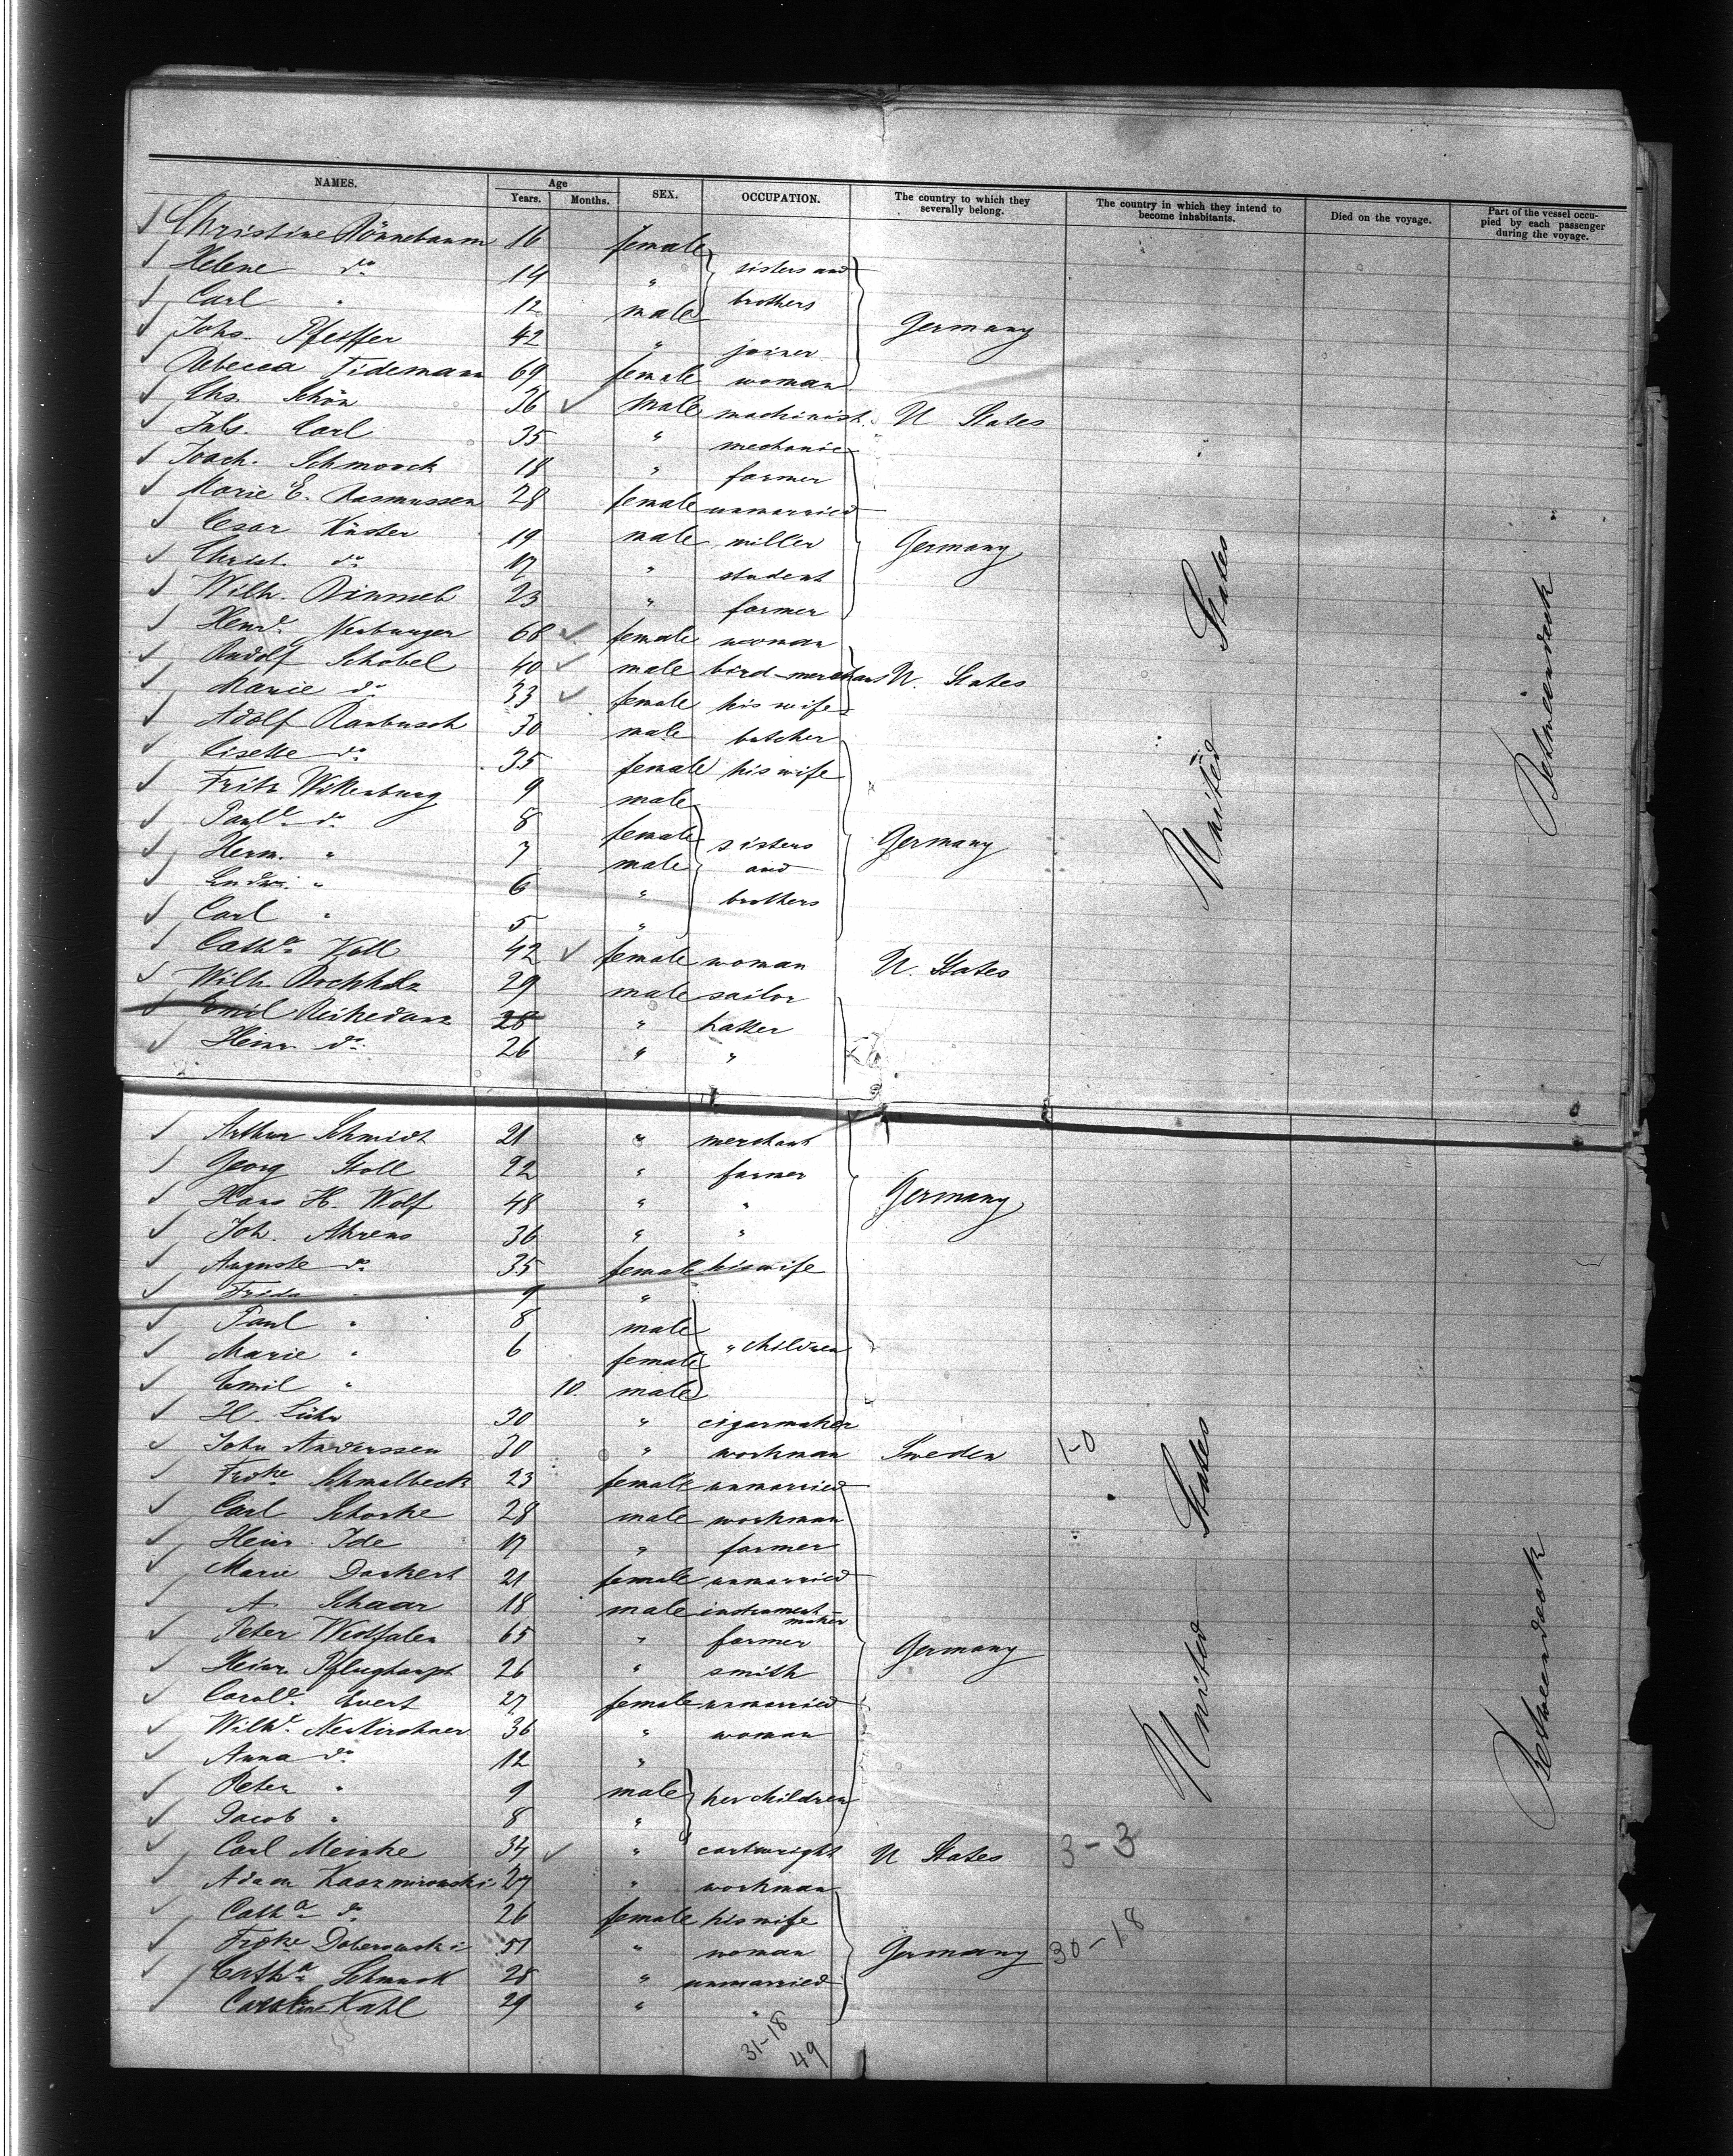 NAMES. Age SEX. OCCUPATION. The country to which they severally belong. The country in which they intend to become inhabitants. Died on the voyage. Part of the vessel occupied by each passenger during the voyage.
Years. Months.
Christine Rönnebaum 16 female
Helene do 14 " sisters and
Carl " 12 male brothers
Johs. Pfeiffer 42 " joiner Germany
Rebecca Tidemann 69 female woman
Chs. Schön 36 male machinist U States
Juls. Carl 35 " mechanic
Joach. Schmoock 18 " farmer
Marie E. Rasmussen 28 female unmarried
Cesar Küster 19 male miller Germany
Christ. do 17 " student
Wilh. 23 " farmer
Henr. Neuburger 68 female woman
Rudolf Schobel 40 male bird-merchant U. States
Marie do 33 female his wife
Adolf 30 male butcher
Lisette do 35 female his wife
Fritz Wittenburg 9 male
Paule do 8 female sisters Germany
Herm. " 7 male and
Ludw. " 6 " brothers
Carl " 5 "
Catha Koll 42 female woman U. States
Wilh. Rochholz 29 male sailor
Emil 28 " hatter
Heinr. do 26 " "
United States
Betweendeck
Arthur Schmidt 21 " merchant
Georg Stoll 22 " farmer
Hans H. Wolf 48 " " Germany
Joh. Ahrens 36 " "
Auguste do 35 female his wife
Frida " 9 "
Paul " 8 male
Marie " 6 female " children
Emil " 10 male
H. Lühr 30 " cigarmaker
John Anderssen 30 " workman Sweden 1-0
Frdke Schmalbeck 23 female unmarried
Carl Schorke 28 male workman
Heinr. Ide 17 " farmer
Marie Dankert 21 female unmarried
A. Schaar 18 male instrument maker
Peter Westfalen 65 " farmer Germany
Heinr. Pflughaupt 26 " smith
Carole. Evert 27 female unmarried
Wilhe. Neukirchner 36 " woman
Anna do 12 "
Peter " 9 male her children
Jacob " 8 "
Carl Meinke 34 " cartwright U States 3-3
Adam Kaszmirowski 27 " workman
Catha do 26 female his wife
Frdke Doberowski 51 " woman Germany 30-18
Catha Schmuck 28 " unmarried
Caroline Kahl 29 " "
United States
Betweendeck
31-18
49